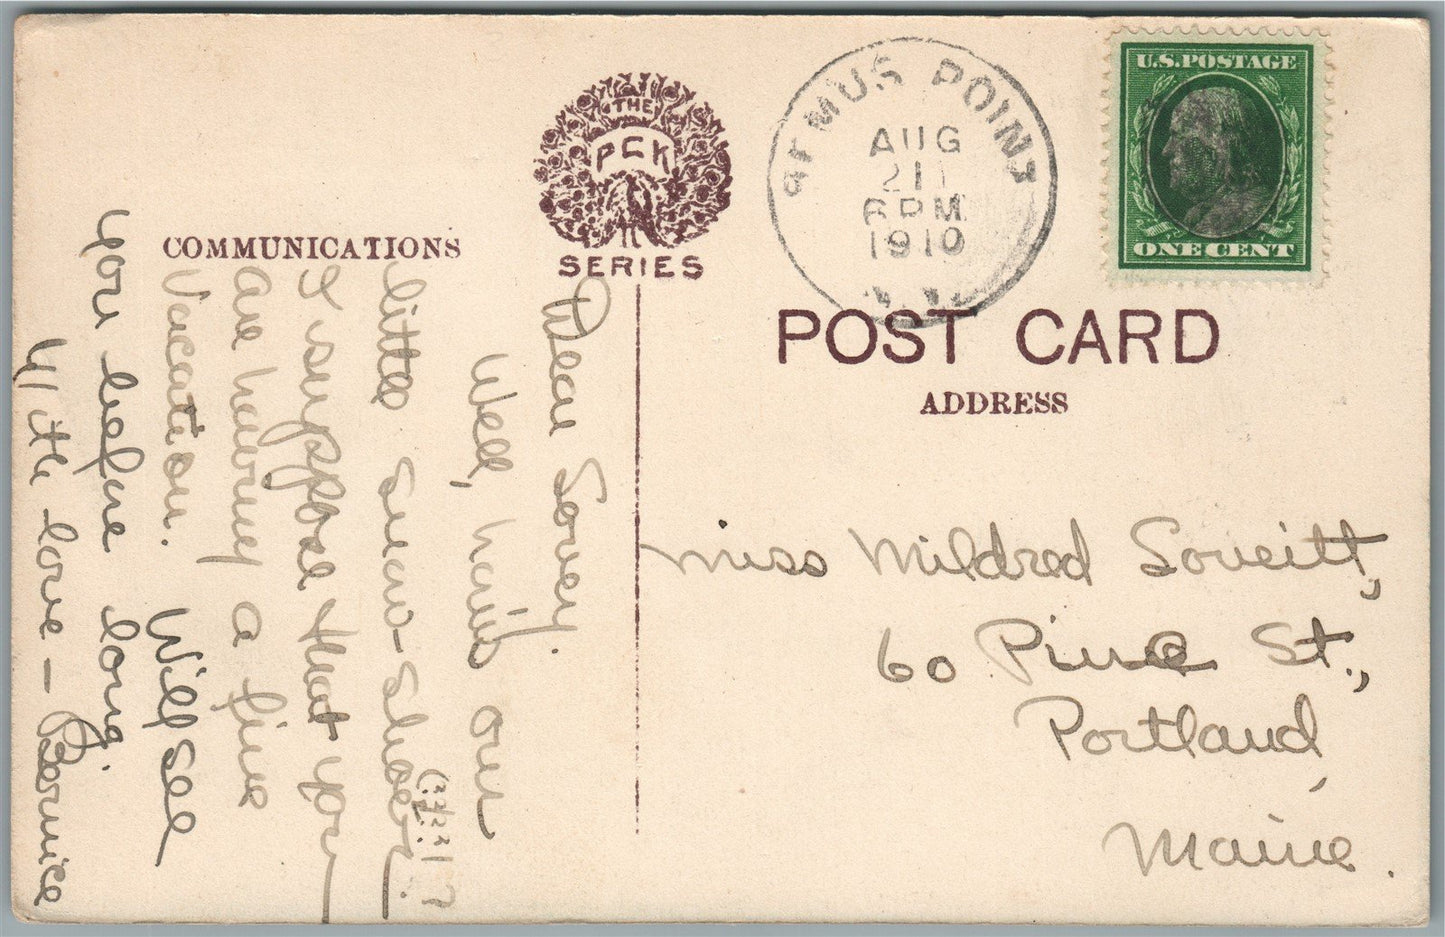 COMMUNICATIONS
THE
PCK
SERIES
BEMUS POINT
AUG
21
6 PM
1910
N.Y.
U.S. POSTAGE
ONE CENT
POST CARD
ADDRESS
Dear Lovey.
Well, how's our
little snow-shoer!
(???!!??
I suppose that you
are having a fine
Vacation. Will see
you before long.
With love — Bernice
Miss Mildred Loveitt,
60 Pine St.,
Portland,
Maine.